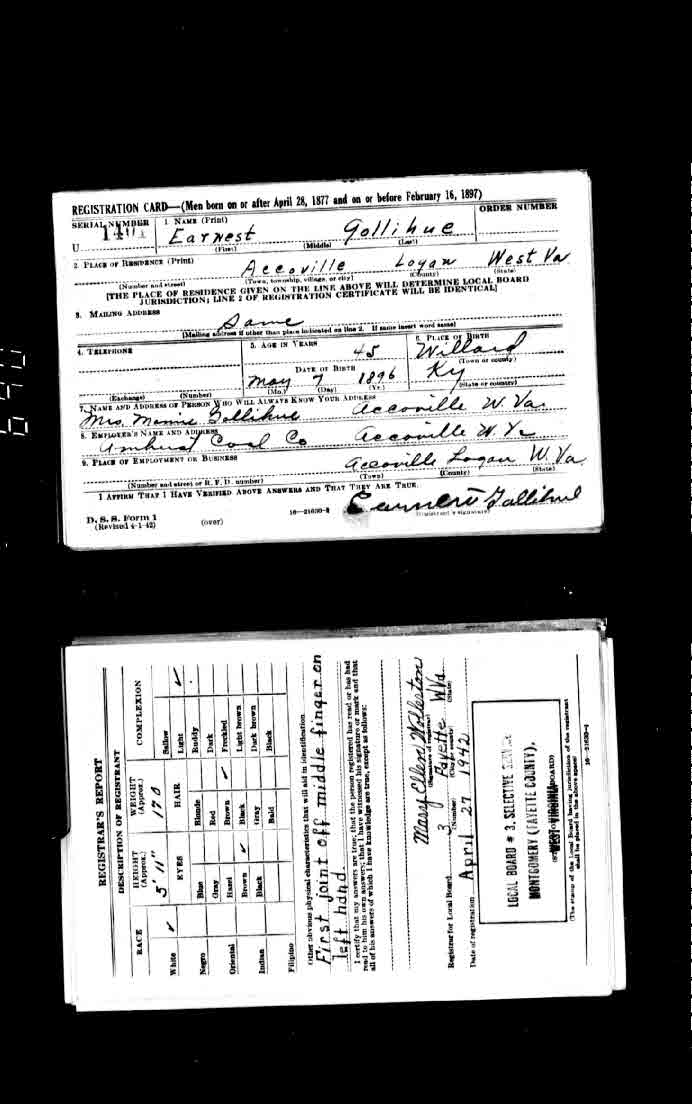 REGISTRATION CARD—(Men born on or after April 28, 1877 and on or before February 16, 1897)
SERIAL NUMBER 1. NAME (Print) ORDER NUMBER
U Earnest Gollihue
(First) (Middle) (Last)
2. PLACE OF RESIDENCE (Print)
Accoville Logan West Va
(Number and street) (Town, township, village, or city) (County) (State)
[THE PLACE OF RESIDENCE GIVEN ON THE LINE ABOVE WILL DETERMINE LOCAL BOARD
JURISDICTION; LINE 2 OF REGISTRATION CERTIFICATE WILL BE IDENTICAL]
3. MAILING ADDRESS
Same
[Mailing address if other than place indicated on line 2. If same insert word same]
4. TELEPHONE 5. AGE IN YEARS 6. PLACE OF BIRTH
45 Willard
DATE OF BIRTH (Town or county)
May 7 1896 Ky
(Exchange) (Number) (Mo.) (Day) (Yr.) (State or country)
7. NAME AND ADDRESS OF PERSON WHO WILL ALWAYS KNOW YOUR ADDRESS
Mrs. Gollihue Accoville W. Va.
8. EMPLOYER'S NAME AND ADDRESS
Amhurst Coal Co Accoville W. Va
9. PLACE OF EMPLOYMENT OR BUSINESS
Accoville Logan W. Va
(Number and street or R. F. D. number) (Town) (County) (State)
I AFFIRM THAT I HAVE VERIFIED ABOVE ANSWERS AND THAT THEY ARE TRUE.
D. S. S. Form 1
(Revised 4-1-42) (over) 16—21630-2 Earnest Gollihue
(Registrant's signature)
REGISTRAR'S REPORT
DESCRIPTION OF REGISTRANT
RACE HEIGHT (Approx.) WEIGHT (Approx.) COMPLEXION
5' 11" 170
White ✓ EYES HAIR Sallow
Light ✓
Negro Blue Blonde Ruddy
Gray Red Dark
Oriental Hazel Brown ✓ Freckled
Brown ✓ Black Light brown
Indian Black Gray Dark brown
Bald Black
Filipino
Other obvious physical characteristics that will aid in identification
First joint off middle finger on
left hand.
I certify that my answers are true; that the person registered has read or has had
read to him his own answers; that I have witnessed his signature or mark and that
all of his answers of which I have knowledge are true, except as follows:
Mary Ellen
(Signature of registrar)
Registrar for Local Board 3 Fayette W Va
(Number) (City or county) (State)
Date of registration April 27 1942
LOCAL BOARD # 3, SELECTIVE SERVICE
MONTGOMERY (FAYETTE COUNTY),
WEST VIRGINIA
(STAMP OF LOCAL BOARD)
(The stamp of the Local Board having jurisdiction of the registrant
shall be placed in the above space)
16—21630-2